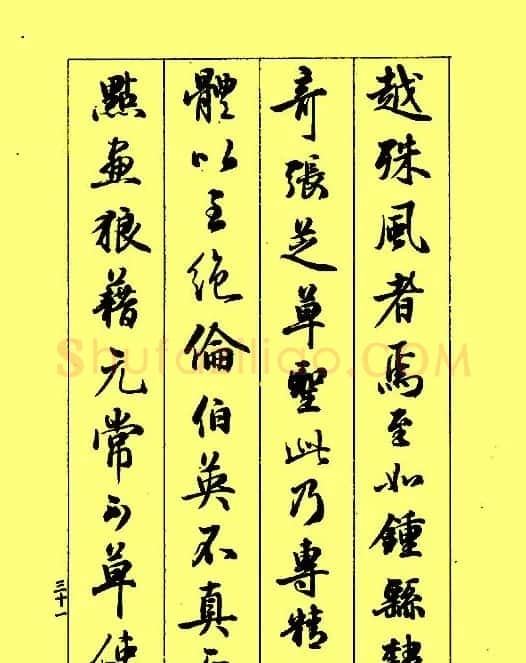 越殊風者焉至如鍾繇隸
奇張芝草聖此乃專精
體以至絕倫伯英不真
點畫狼藉元常不草使
三十一
Shufaziliao.COM